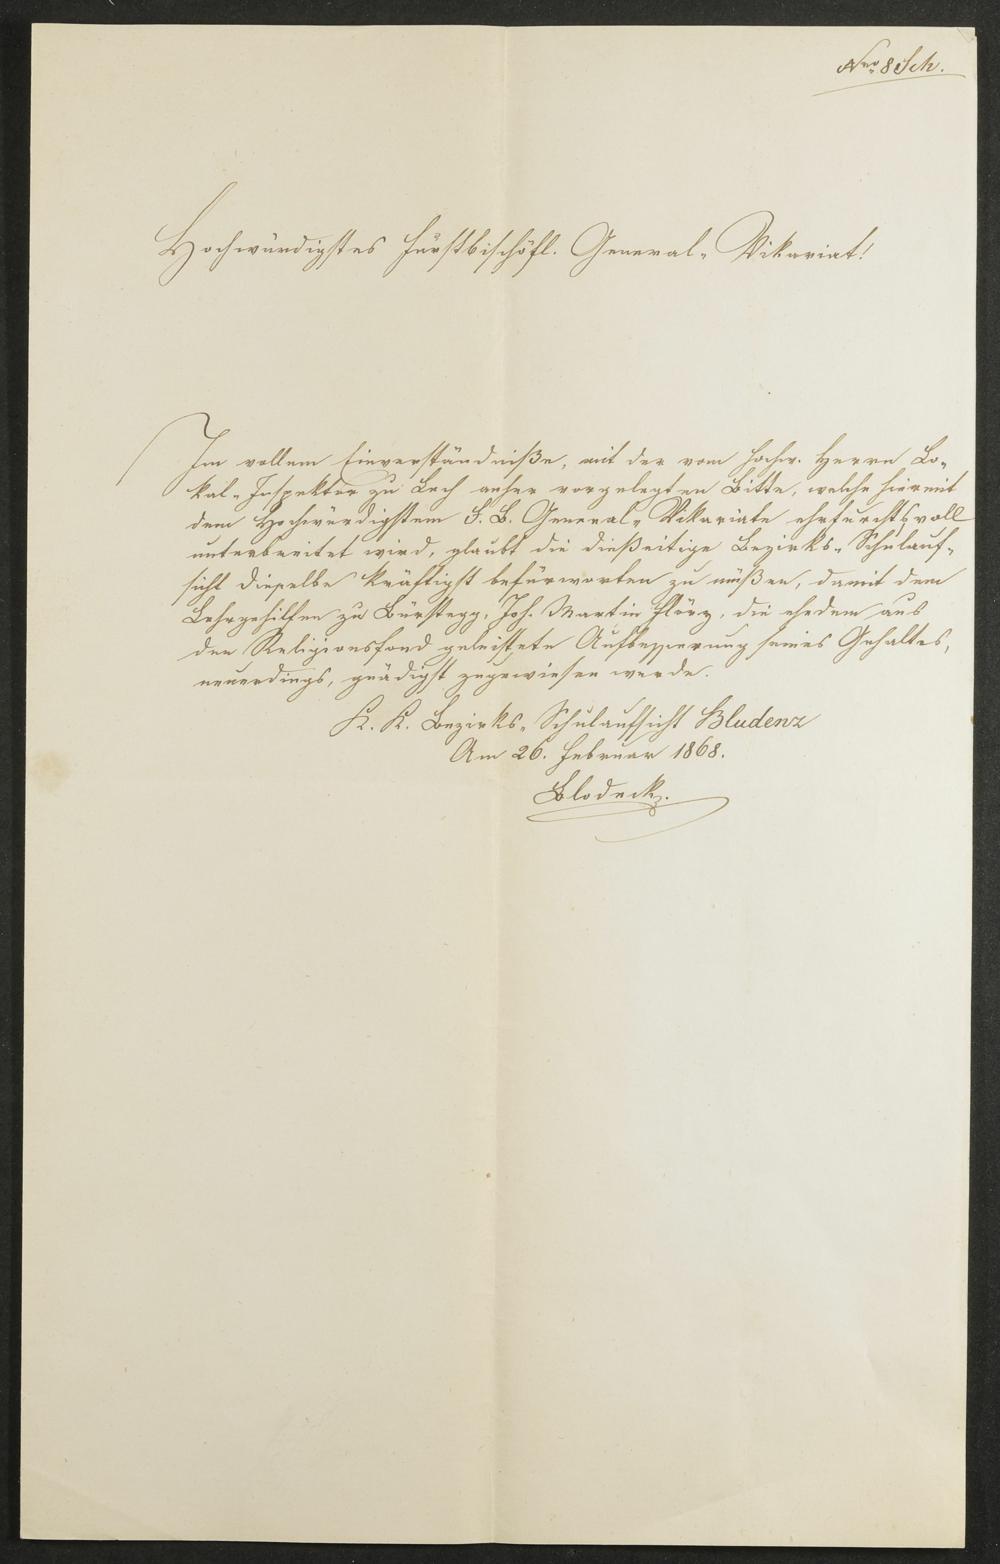 Nro 8 Sch.
Hochwürdigstes Fürstbischöfl. General-Vikariat!
Im vollem Einverständniße, mit der vom Hochw. Herrn Lo-
kal-Inspektor zu Lech anher vorgelegten Bitte, welche hiermit
dem Hochwürdigstem F. B. General-Vikariate ehrfurchtsvoll
unterbreitet wird, glaubt die dießeitige Bezirks-Schulauf-
sicht dieselbe kräftigst befürworten zu müßen, damit dem
Lehrgehilfen zu Bürstegg, Joh. Martin, die ehedem aus
den Religionsfond geleistete Aufbesserung seines Gehaltes,
neuerdings, gnädigst zugewiesen werde.
K. K. Bezirks-Schulaufsicht Bludenz
Am 26. Februar 1868.